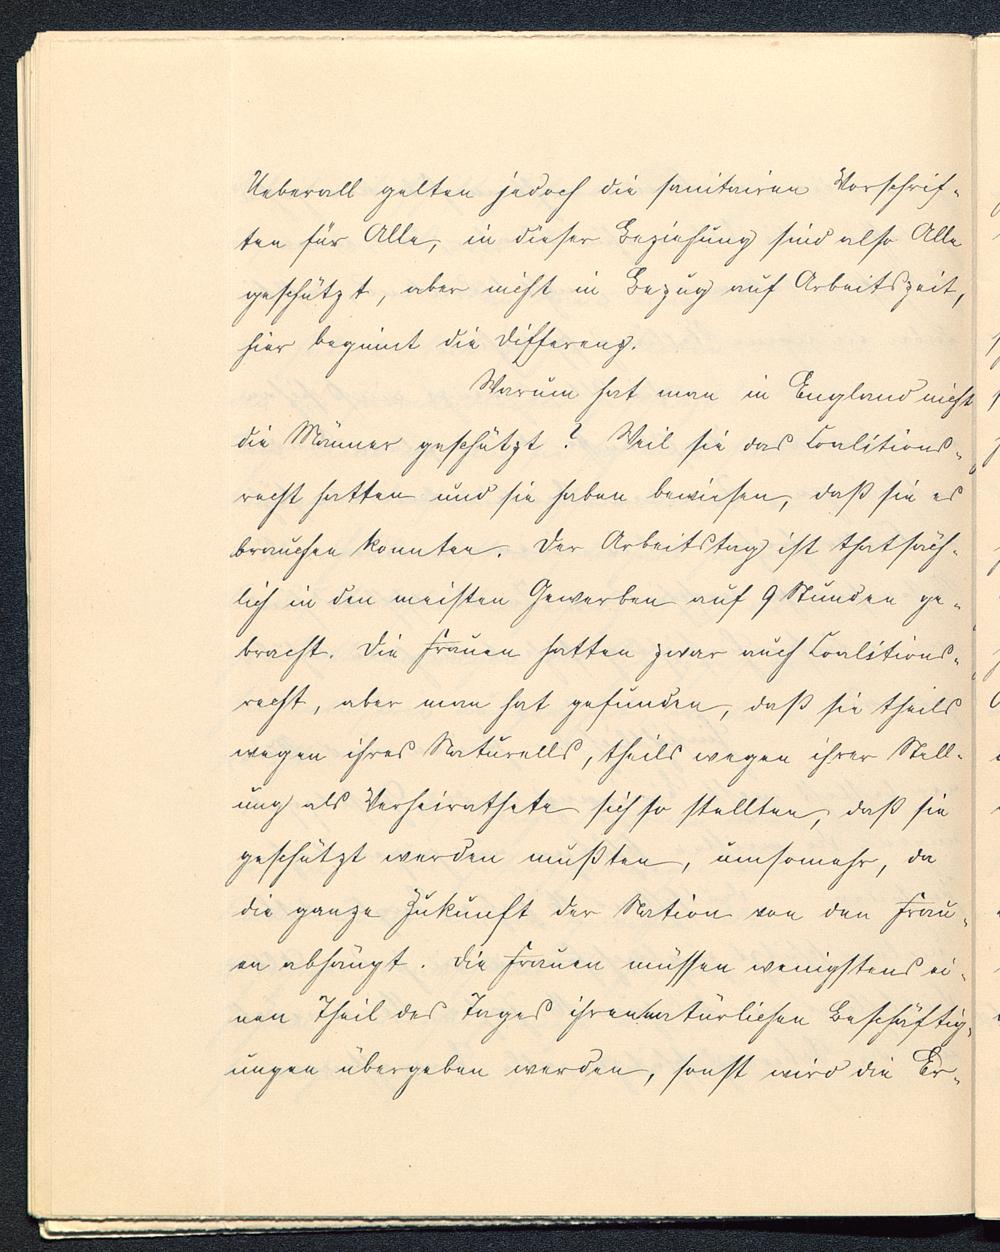 Ueberall gelten jedoch die sanitairen Vorschrif-
ten für Alle, in dieser Beziehung sind also Alle
geschützt, aber nicht in Bezug auf Arbeitszeit,
hier beginnt die Differenz.
Warum hat man in England nicht
die Männer geschützt? Weil sie das Coalitions-
recht hatten und sie haben bewiesen, daß sie es
brauchen konnten. Der Arbeitstag ist thatsäch-
lich in den meisten Gewerben auf 9 Stunden ge-
bracht. Die Frauen hatten zwar auch Coalitions-
recht, aber man hat gefunden, daß sie theils
wegen ihres Naturells, theils wegen ihrer Stell-
ung als Verheirathete sich so stellten, daß sie
geschützt werden mußten, umsomehr, da
die ganze Zukunft der Nation von den Frau-
en abhängt. Die Frauen müssen wenigstens ei-
nen Theil des Tages ihren natürlichen Beschäftig-
ungen übergeben werden, sonst wird die Er-